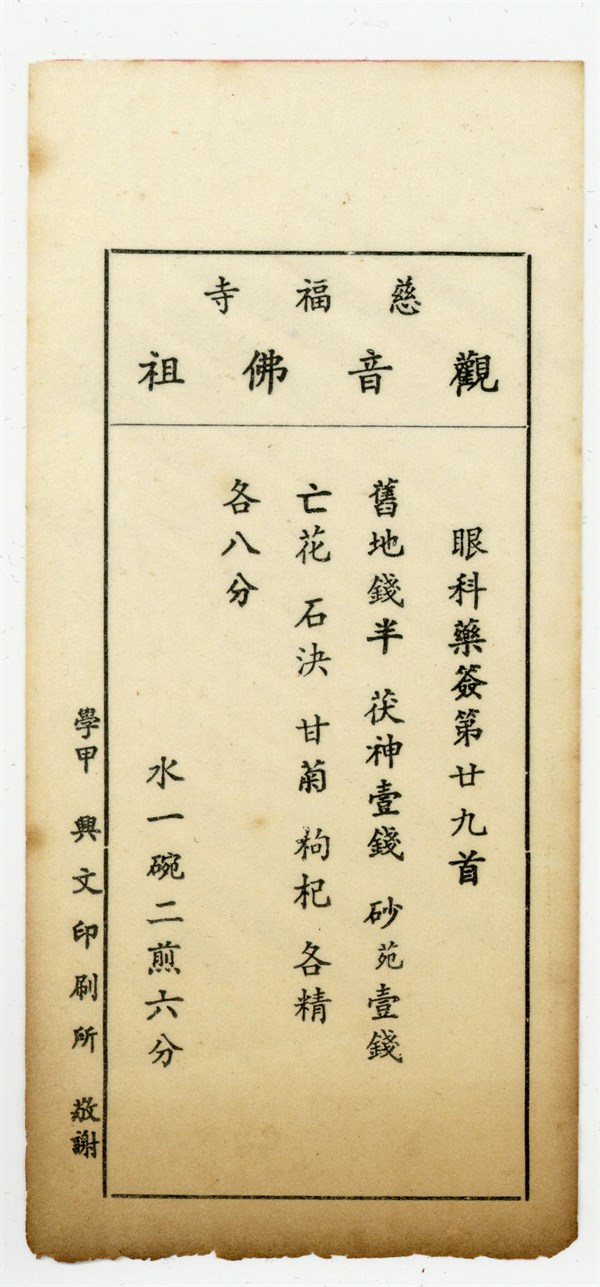 慈福寺
觀音佛祖
眼科藥簽第廿九首
舊地錢半 茯神壹錢 砂苑壹錢
亡花 石決 甘菊 枸杞 各精
各八分
水一碗二煎六分
學甲 興文印刷所 敬謝